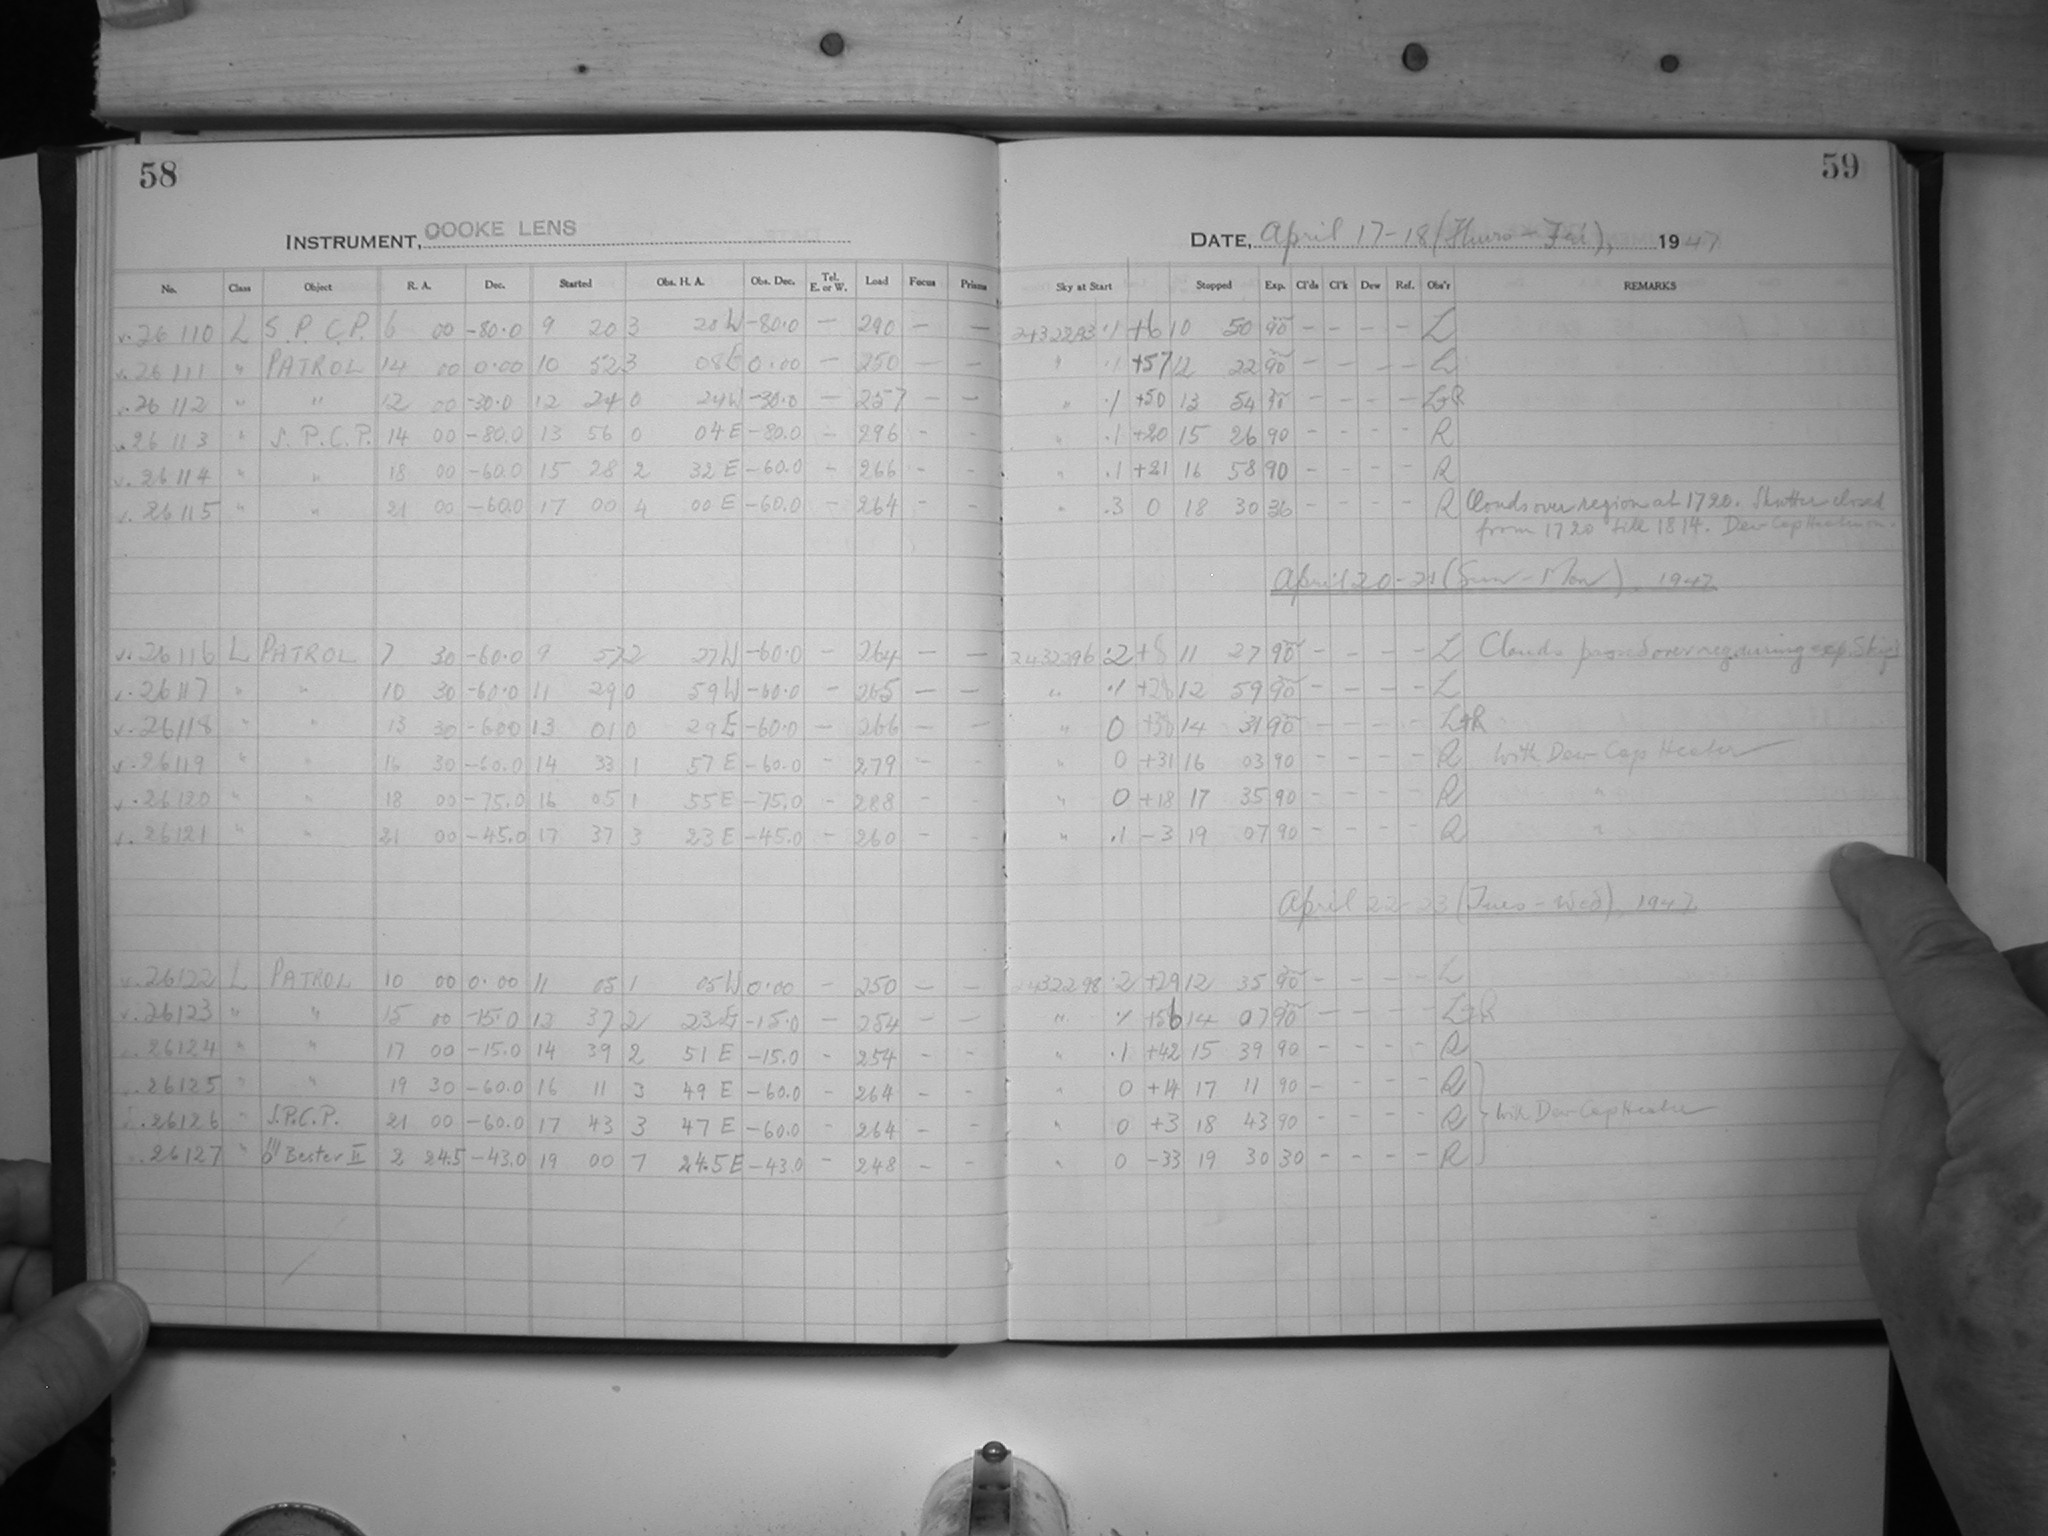 58
59
INSTRUMENT, COOKE LENS
DATE, April 17-18 (Thurs - Fri), 1947
No. Class Object R. A. Dec. Started Obs. H. A. Obs. Dec. Tel. E. or W. Load Focus Prisms Sky at Start Stopped Exp. Cl'ds Cl'k Dew Ref. Obs'r REMARKS
26110 L S.P.C.P. 6 00 -80.0 9 20 3 20W -80.0 - 290 - - 2432293 .1 +6 10 50 90 - - - - L
26111 " PATROL 14 00 0.00 10 52 3 08E 0.00 - 250 - - " .1 +57 12 22 90 - - - - L
26112 " " 12 00 -30.0 12 24 0 24W -30.0 - 257 - - " .1 +50 13 54 90 - - - - L+R
26113 " S.P.C.P. 14 00 -80.0 13 56 0 04E -80.0 - 296 - - " .1 +20 15 26 90 - - - - R
26114 " " 18 00 -60.0 15 28 2 32E -60.0 - 266 - - " .1 +21 16 58 90 - - - - R
26115 " " 21 00 -60.0 17 00 4 00E -60.0 - 264 - - " .3 0 18 30 36 - - - - R Clouds over region at 1720. Shutter closed
from 1720 till 1814. Dew Cap Heater on.
April 20-21 (Sun - Mon), 1947
26116 L PATROL 7 30 -60.0 9 57 2 27W -60.0 - 264 - - 2432296 .2 11 27 90 - - - - L Clouds passed over reg. during exp.
26117 " " 10 30 -60.0 11 29 0 59W -60.0 - 265 - - " .1 12 59 90 - - - - L
26118 " " 13 30 -60.0 13 01 0 29E -60.0 - 266 - - " 0 14 31 90 - - - - L+R
26119 " " 16 30 -60.0 14 33 1 57E -60.0 - 279 - - " 0 +31 16 03 90 - - - - R With Dew Cap Heater
26120 " " 18 00 -75.0 16 05 1 55E -75.0 - 288 - - " 0 +18 17 35 90 - - - - R "
26121 " " 21 00 -45.0 17 37 3 23E -45.0 - 260 - - " .1 -3 19 07 90 - - - - R "
April 22-23 (Tues - Wed), 1947
26122 L PATROL 10 00 0.00 11 05 1 05W 0.00 - 250 - - 2432298 .2 +29 12 35 90 - - - - L
26123 " " 15 00 -15.0 12 37 2 23E -15.0 - 254 - - " .1 +56 14 07 90 - - - - L+R
26124 " " 17 00 -15.0 14 39 2 51E -15.0 - 254 - - " .1 +42 15 39 90 - - - - R
26125 " " 19 30 -60.0 16 11 3 49E -60.0 - 264 - - " 0 +14 17 11 90 - - - - R
26126 " S.P.C.P. 21 00 -60.0 17 43 3 47E -60.0 - 264 - - " 0 +3 18 43 90 - - - - R With Dew Cap Heater
26127 " Bester II 2 24.5 -43.0 19 00 7 24.5E -43.0 - 248 - - " 0 -33 19 30 30 - - - - R